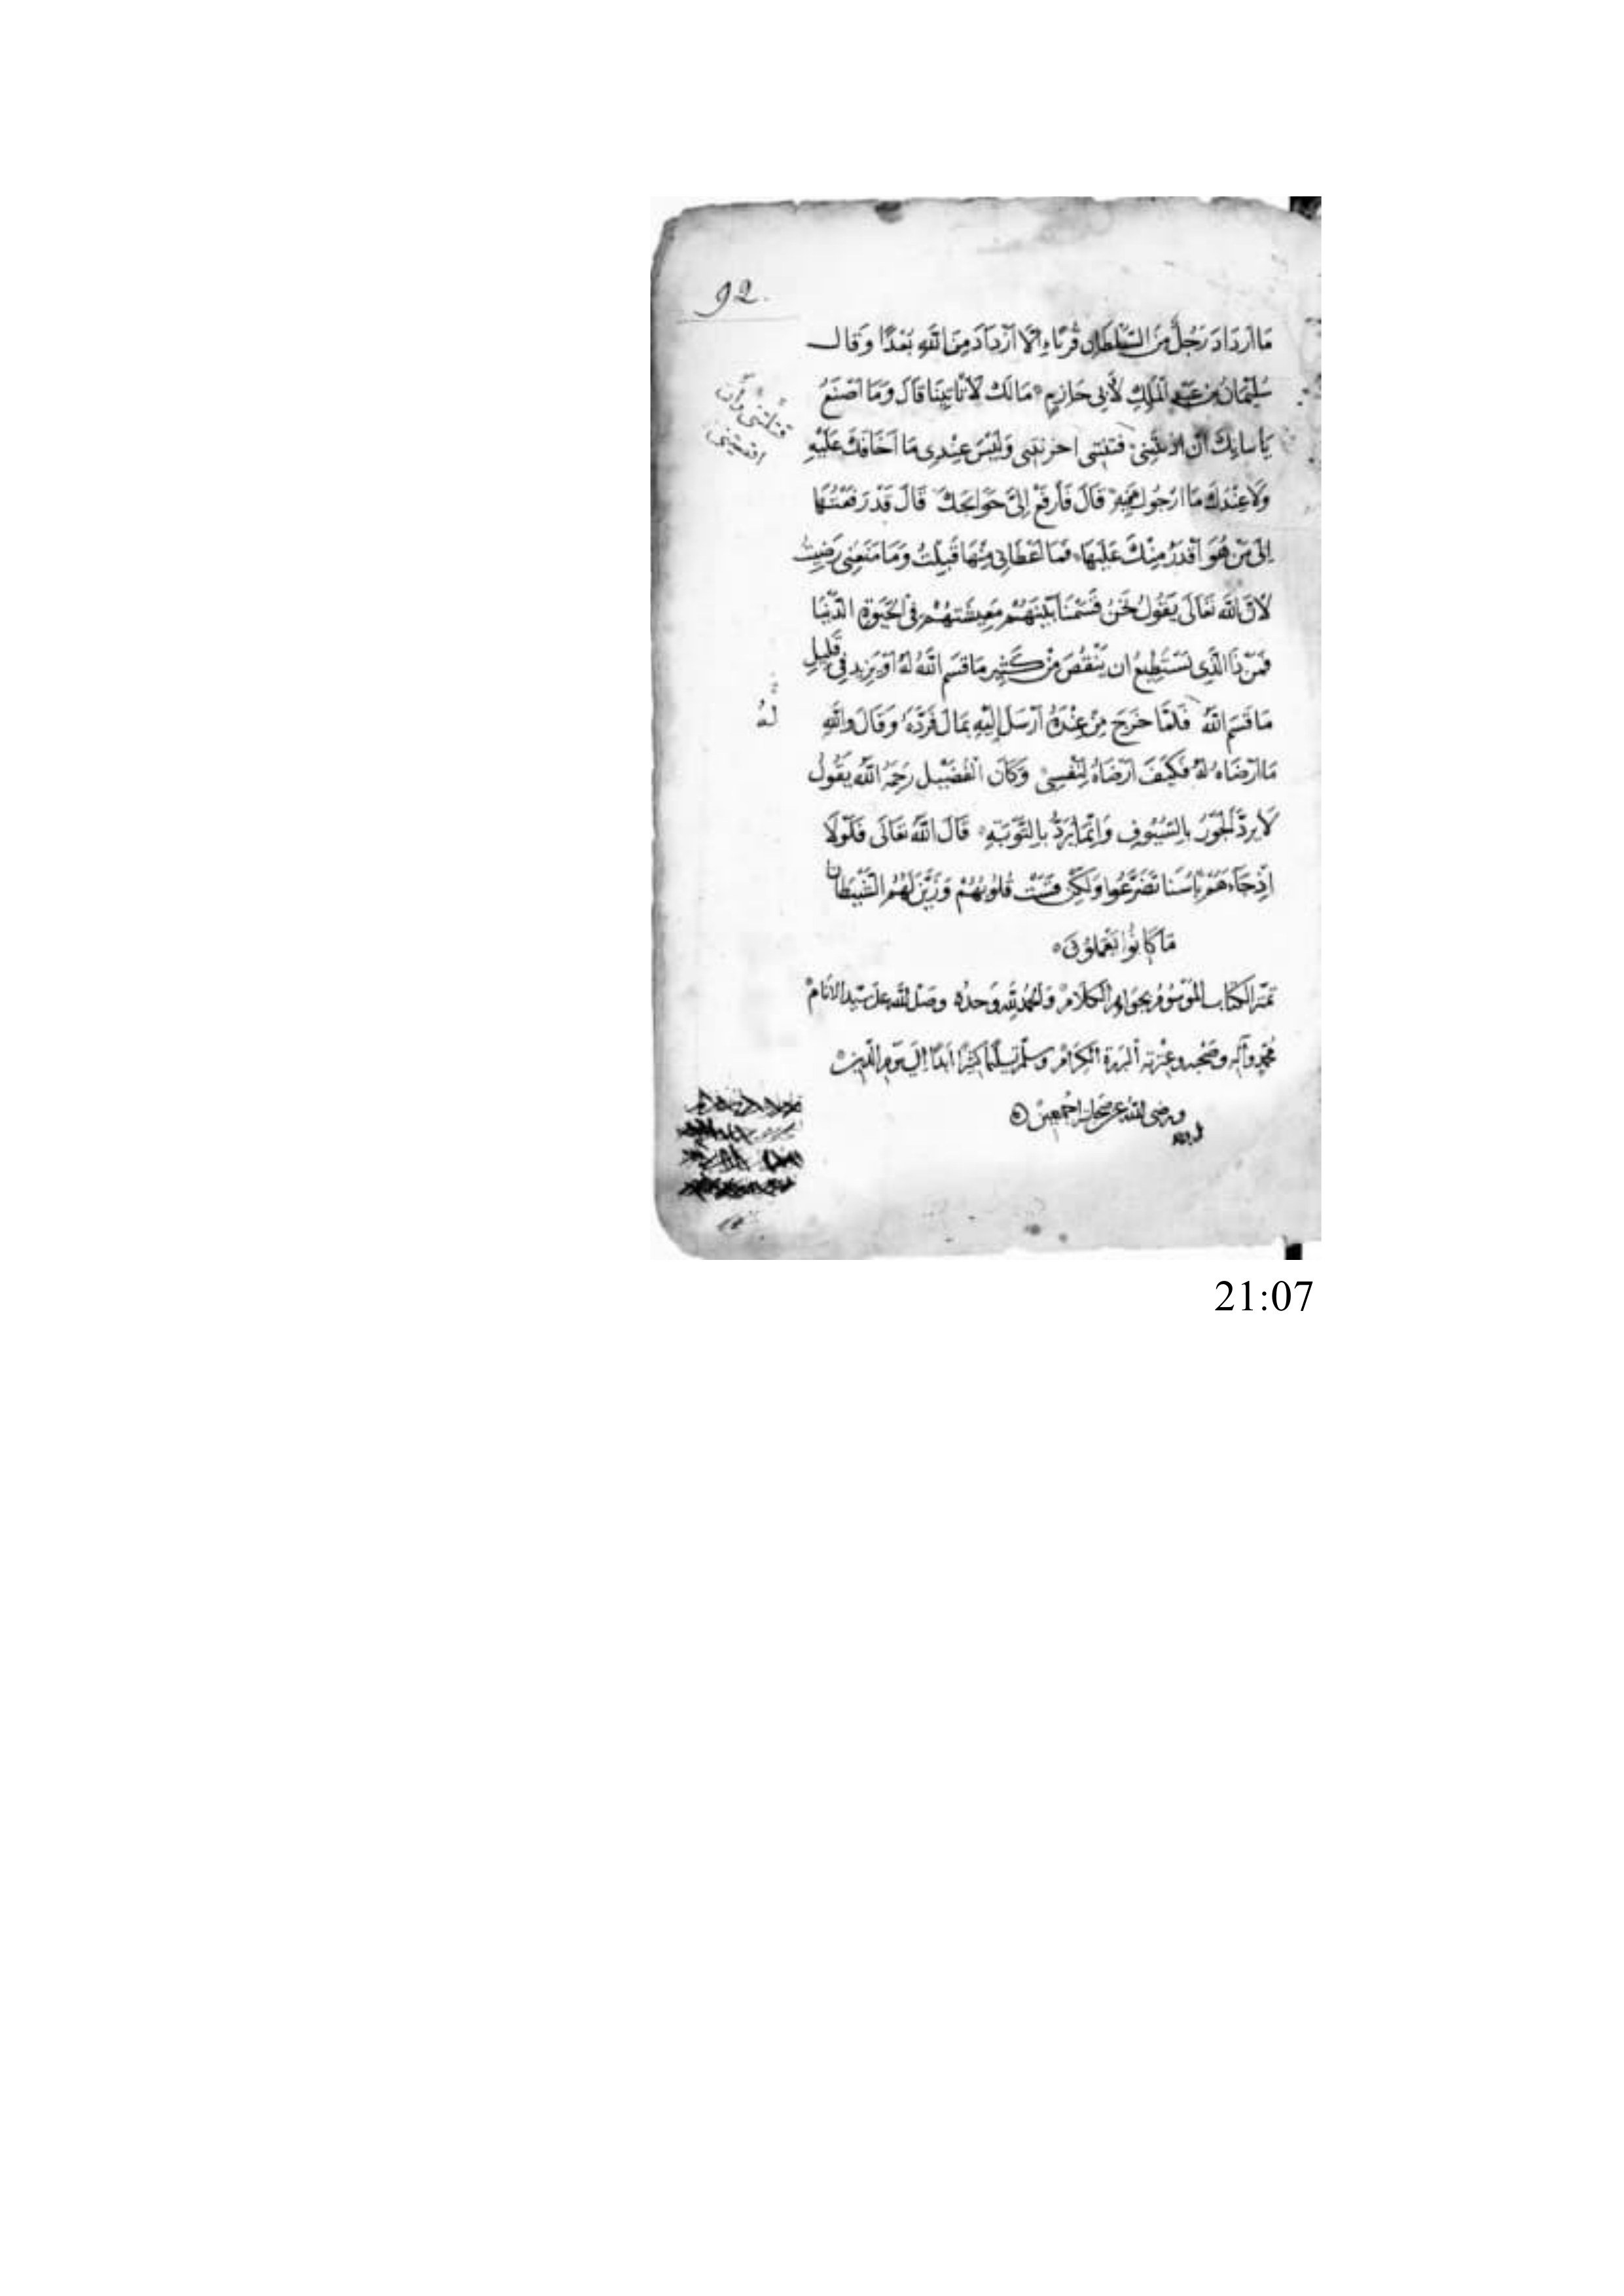 92.
مَا ازدَادَ رَجُلٌ مِنَ السُّلطَانِ قُربًا اِلَّا ازْدَادَ مِنَ اللَّهِ بُعْدًا وَقَال
سُلَيْمَانُ بْنُ عَبْدِ الْمَلِكِ لأَبِى حَازِمٍ مَا لَكَ لَا تَاتِينَا قَالَ وَمَا اَصْنَعُ
بِاتيانِكَ ان ادنَيْتَنِى فتنتنى احزنتنى وَلَيْسَ عِنْدِى مَا اَخَافُكَ عَلَيْهِ
قتلتنى وان
اقصيتنى
وَلَا عِنْدَكَ مَا ارْجُوكَ قَالَ فَارْفَعْ اِلَىَّ حَوَائِجَكَ قَالَ قَدْ رَفَعْتُهَا
اِلَى مَنْ هُوَ اَقْدَرُ مِنْكَ عَلَيْهَا فَمَا اَعْطَانِى مِنْهَا قَبِلْتُ وَمَا مَنَعَنِى رَضِيتُ
لِأَنَّ اللَّهَ تَعَالَى يَقُولُ نَحْنُ قَسَمْنَا بَيْنَهُمْ مَعِيشَتَهُمْ فِى الْحَيَوةِ الدُّنْيَا
فَمَنْ ذَا الَّذِى يَسْتَطِيعُ ان يَنْقُصَ مِنْ كَثِيرِ مَا قسَمَ اللَّهُ لَهُ اَوْ يَزِيدَ فِى قَلِيلِ
مَا قَسَمَ اللَّهُ فَلَمَّا خَرَجَ مِنْ عِنْدَهُ اَرْسَلَ اِلَيْهِ بِمَالٍ فَرَدَّهُ وَقَالَ وَاللَّهِ
لَهُ
مَا اَرْضَاهُ لَهُ فَكَيْفَ اَرْضَاهُ لِنَفْسِى وَكَانَ الْفُضَيْل رَحِمَهُ اللَّهُ يَقُولُ
لَا يردّ الْجَوْرُ بِالسُّيُوفِ وَاِنَّمَا يُرَدُّ بِالتَّوْبَةِ قَالَ اللَّهُ تَعَالَى فَلَوْلَا
اِذْ جَاءَهُمْ بَاْسُنَا تَضَرَّعُوا وَلَكِنْ قَسَتْ قُلُوبُهُمْ وَزَيَّنَ لَهُمُ الشَّيْطَان
مَا كَانُوا يَعْمَلُونَ
تمّ الكتَاب الْمَوْسُوم بجَوَاهِر الْكَلَامْ وَالْحَمْدُ لِلَّهِ وَحْدَهُ وصَلى اللَّه على سَيّد الانَامْ
مُحَمَّدٍ وَآلِهِ وصَحْبِهِ وعِتْرَتِهِ الْبَرَرَة الْكِرَامْ وسَلّم تَسْلِيمًا كَثِيرًا اَبَدًا اِلَى يَوْمِ الدِّين
ورضى اللَّه عن صحابه اَجْمَعِينْ
21:07